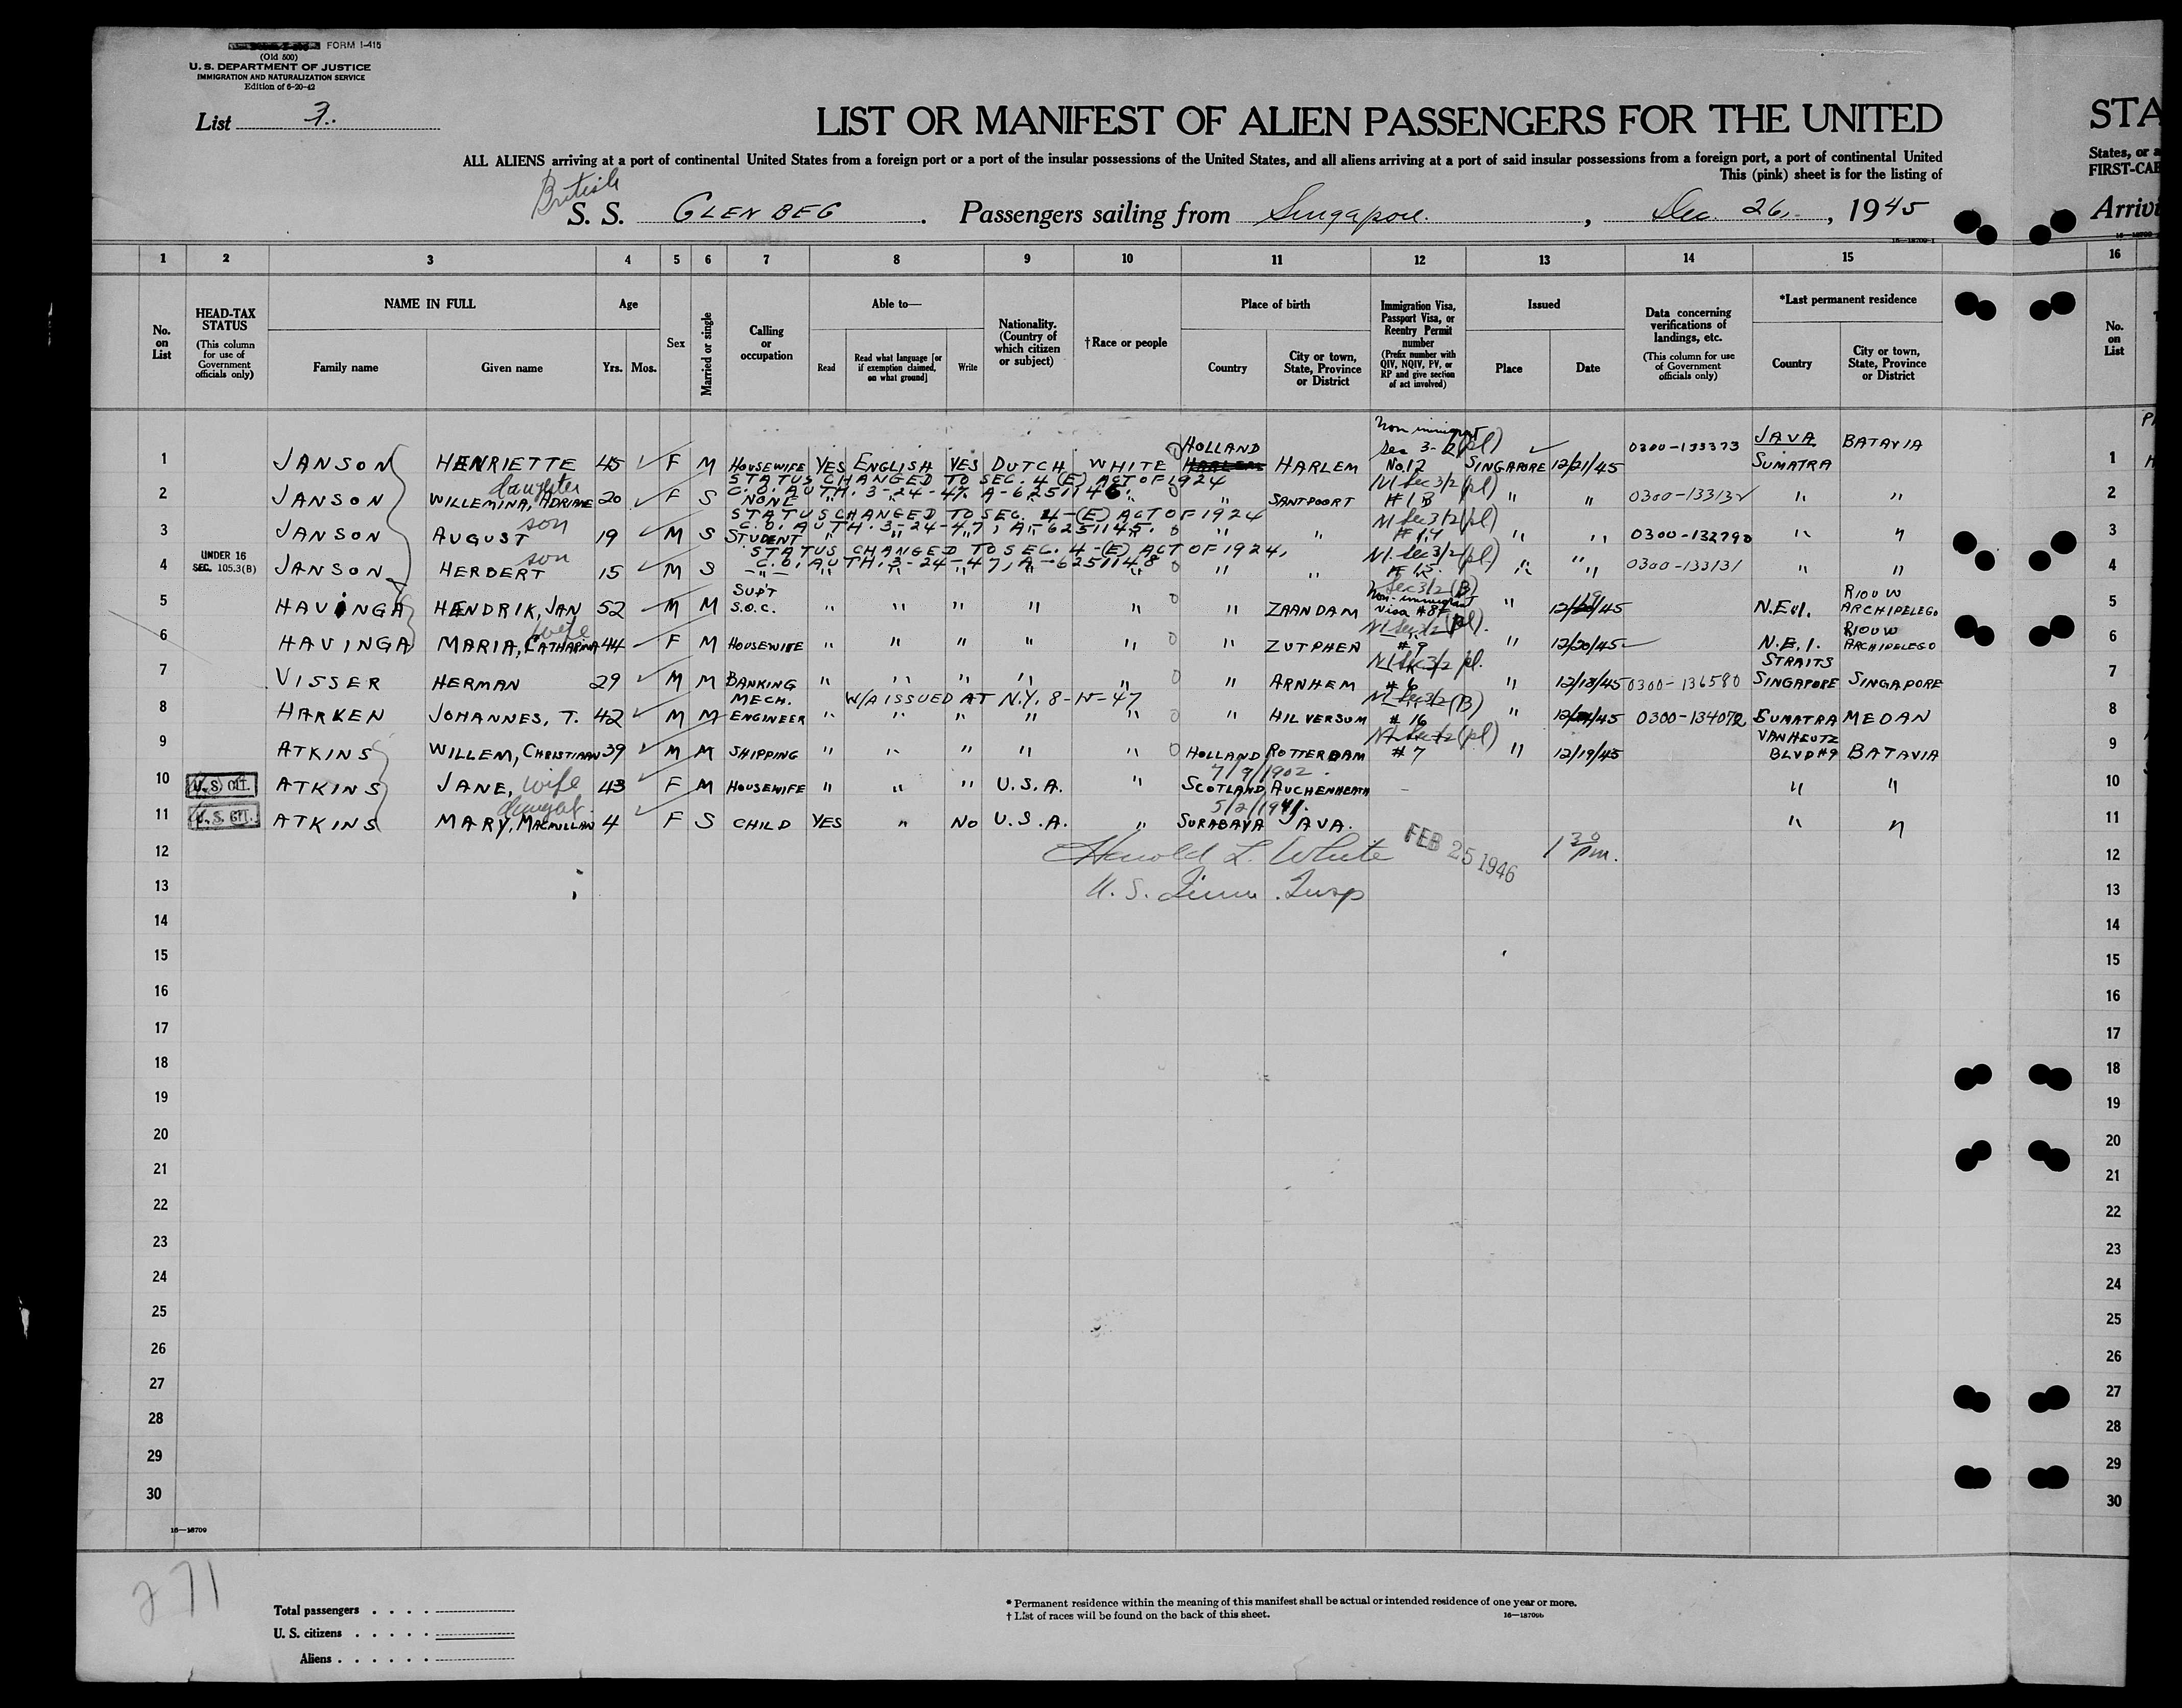 FORM I-415
(Old 500)
U. S. DEPARTMENT OF JUSTICE
IMMIGRATION AND NATURALIZATION SERVICE
Edition of 6-20-42
List 3.
LIST OR MANIFEST OF ALIEN PASSENGERS FOR THE UNITED
STA
ALL ALIENS arriving at a port of continental United States from a foreign port or a port of the insular possessions of the United States, and all aliens arriving at a port of said insular possessions from a foreign port, a port of continental United
States, or a
This (pink) sheet is for the listing of
FIRST-CAB
British
S. S. GLENBEG . Passengers sailing from Singapore. , Dec. 26, , 1945
Arrivi
16—18709-1
1 2 3 4 5 6 7 8 9 10 11 12 13 14 15 16
No. on List
HEAD-TAX STATUS
(This column for use of Government officials only)
NAME IN FULL
Family name
Given name
Age
Yrs. Mos.
Sex
Married or single
Calling or occupation
Able to—
Read
Read what language [or if exemption claimed, on what ground]
Write
Nationality. (Country of which citizen or subject)
†Race or people
Place of birth
Country
City or town, State, Province or District
Immigration Visa, Passport Visa, or Reentry Permit number
(Prefix number with QIV, NQIV, PV, or RP and give section of act involved)
Issued
Place
Date
Data concerning verifications of landings, etc.
(This column for use of Government officials only)
*Last permanent residence
Country
City or town, State, Province or District
No. on List
Non immigrant
HOLLAND Sec 3-2(pl) 0300-133373 JAVA BATAVIA
1 JANSON HENRIETTE 45 F M HOUSEWIFE YES ENGLISH YES DUTCH WHITE HARLEM No.12 SINGAPORE 12/21/45 SUMATRA 1
STATUS CHANGED TO SEC. 4 (E) ACT OF 1924
daughter C.O. AUTH. 3-24-47. A-6251146. NI Sec 3/2 (pl)
2 JANSON WILLEMINA, ADRIANE 20 F S NONE " " " " " " SANTPOORT #13 " " 0300-133132 " " 2
STATUS CHANGED TO SEC. 4-(E) ACT OF 1924
son C.O. AUTH. 3-24-47, A-6251145. NI Sec 3/2 (pl)
3 JANSON AUGUST 19 M S STUDENT " " " " " " " #14 " " 0300-132790 " " 3
STATUS CHANGED TO SEC. 4-(E) ACT OF 1924,
UNDER 16 son C.O. AUTH. 3-24-47, A-6251148 NI. Sec 3/2 (pl)
4 SEC. 105.3(B) JANSON HERBERT 15 M S —"— " " " " " " " #15. " " 0300-133131 " " 4
SUP'T Sec 3/2 (B) Non-immigrant RIOUW
5 HAVINGA HENDRIK, JAN 52 M M S.O.C. " " " " " " ZAANDAM Visa #8 " 12/19/45 N.E.I. ARCHIPELEGO 5
wife NI Sec 3/2 (pl). RIOUW
6 HAVINGA MARIA, CATHARINA 44 F M HOUSEWIFE " " " " " " ZUTPHEN #9 " 12/20/45 N.E.I. ARCHIPELEGO 6
NI Sec 3/2 pl. STRAITS
7 VISSER HERMAN 29 M M BANKING " " " " " " ARNHEM #6 " 12/13/45 0300-136580 SINGAPORE SINGAPORE 7
MECH. W/A ISSUED AT N.Y. 8-15-47 NI Sec 3/2 (B)
8 HARKEN JOHANNES, T. 42 M M ENGINEER " " " " " " HILVERSUM #16 " 12/21/45 0300-134072 SUMATRA MEDAN 8
NI Sec 3/2 (pl) VAN HEUTZ
9 ATKINS WILLEM, CHRISTIAAN 39 M M SHIPPING " " " " " HOLLAND ROTTERDAM #7 " 12/19/45 BLVD #9 BATAVIA 9
7/9/1902
10 U.S. CIT. ATKINS JANE, wife 43 F M HOUSEWIFE " " " U.S.A. " SCOTLAND, AUCHENHEATH — " " 10
5/2/1941.
11 U.S. CIT. ATKINS MARY, MACMILLAN 4 F S CHILD YES " NO U.S.A. " SURABAYA JAVA. " " 11
12 Harold L. White FEB 25 1946 1 30 pm. 12
13 U. S. Imm. Insp 13
14 14
15 15
16 16
17 17
18 18
19 19
20 20
21 21
22 22
23 23
24 24
25 25
26 26
27 27
28 28
29 29
30 30
16—18709
271
Total passengers . . . .
U. S. citizens . . . . .
Aliens . . . . . .
* Permanent residence within the meaning of this manifest shall be actual or intended residence of one year or more.
† List of races will be found on the back of this sheet.
16—18709b